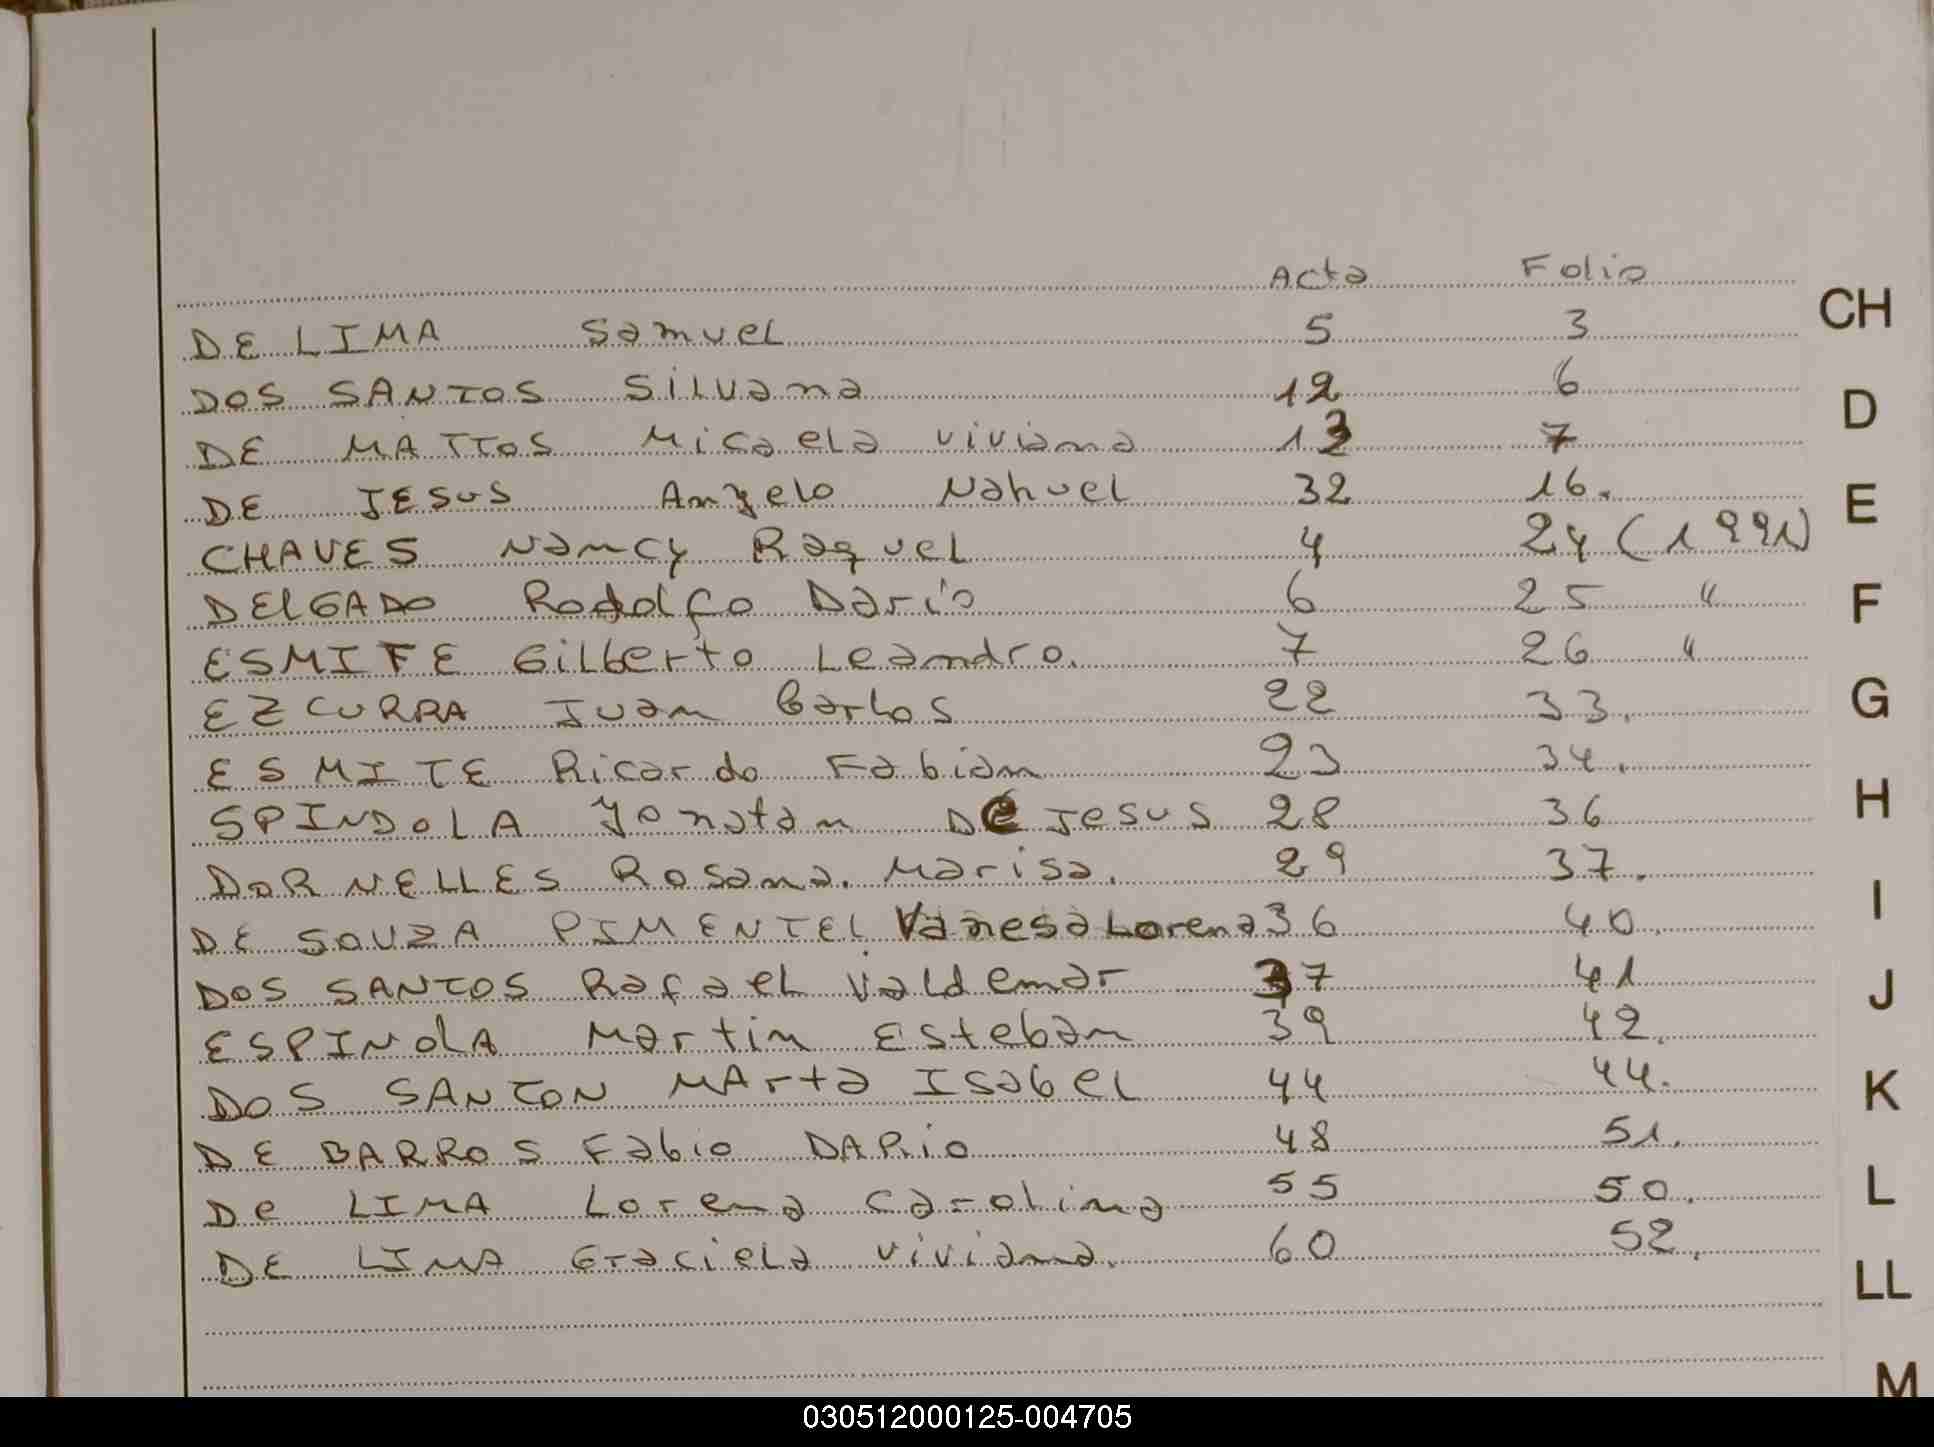 Acta Folio
DE LIMA Samuel 5 3
DOS SANTOS Silvana 12 6
DE MATTOS Micaela Viviana 13 7
DE JESUS Angelo Nahuel 32 16.
CHAVES Nancy Raquel 4 24 (1991)
DELGADO Rodolfo Dario 6 25 "
ESMIFE Gilberto Leandro. 7 26 "
EZCURRA Juan Carlos 22 33.
ESMITE Ricardo Fabian 23 34.
SPINDOLA Jonatan De Jesus 28 36
DORNELLES Rosana. Marisa. 29 37.
DE SOUZA PIMENTEL Vanesa Lorena 36 40.
DOS SANTOS Rafael Valdemar 37 41
ESPINOLA Martin Esteban 39 42.
DOS SANTON Marta Isabel 44 44.
DE BARROS Fabio DARio 48 51.
De LIMA Lorena Carolina 55 50.
DE LIMA Graciela Viviana. 60 52.
CH
D
E
F
G
H
I
J
K
L
LL
M
030512000125-004705